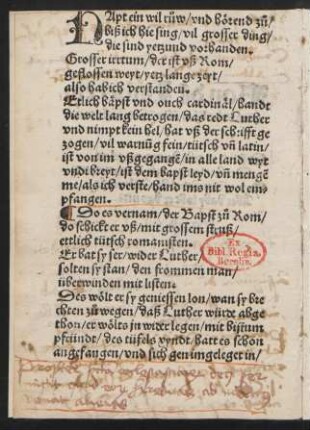 Napt ein wil rüw/vnd hörend zů/
biß ich hie sing/vil grosser ding/
die sind yetzund vorhanden.
Grosser irrtum/der ist vß Rom/
geflossen weyt/yetz lange zeyt/
also hab ich verstanden.
Etlich bäpst vnd ouch cardinäl/handt
die welt lang betrogen/das redt Luther
vnd nimpt kein hel/hat vß der schrifft ge
zogen/vil warnūg fein/tütsch vñ latin/
ist von im vßgegangē/in alle land wyt
vnd breyt/ist dem bapst leyd/vñ mengē
me/als ich verste/hand ims nit wol em-
pfangen.
¶ Do es vernam/der Bapst zů Rom/
do schickt er vß/mit grossen struß/
ettlich tütsch romanisten.
Er bat sy ser/wider Luther/
solten sy stan/den frommen man/
überwinden mit listen.
Des wölt er sy geniessen lon/wan sy bre
chten zů wegen/daß Luther würde abge
thon/er wölts in wider legen/mit bistum
pfründt/des tüfels fyndt/hatt es schon
angefangen/vnd sich gen im geleget in/
Ex
Bibl. Regia
Berolin.